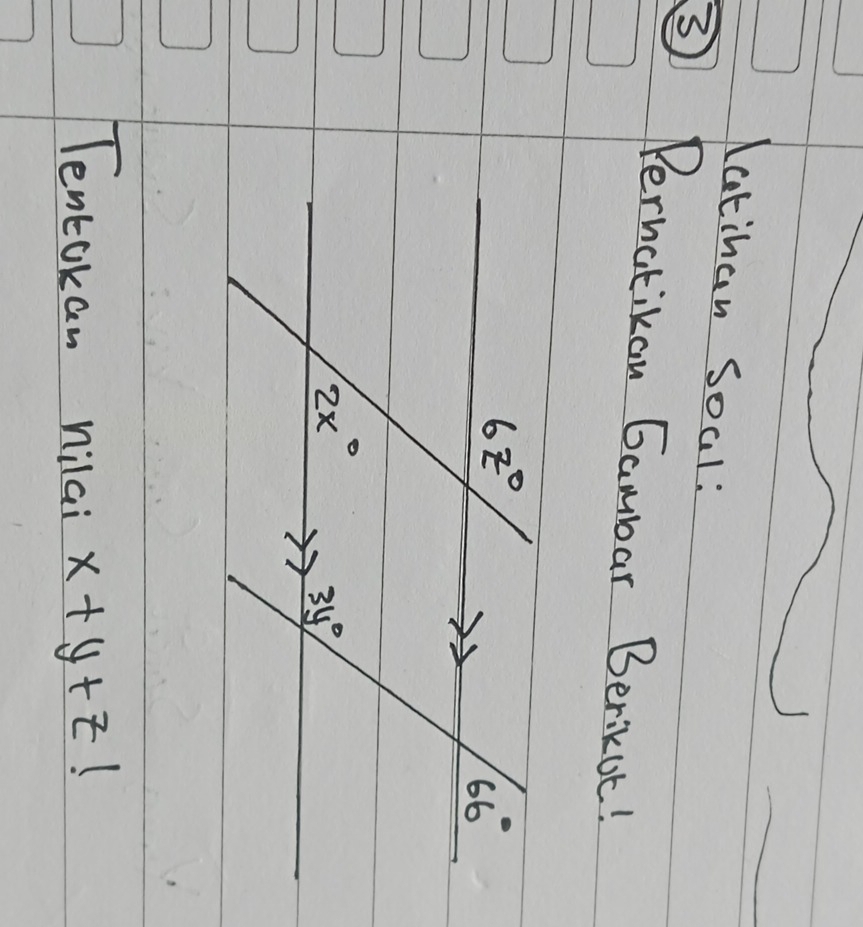 Latihan Soal:
③ Perhatikan Gambar Berikut!
6z°
66°
2x°
3y°
Tentukan nilai x+y+z!